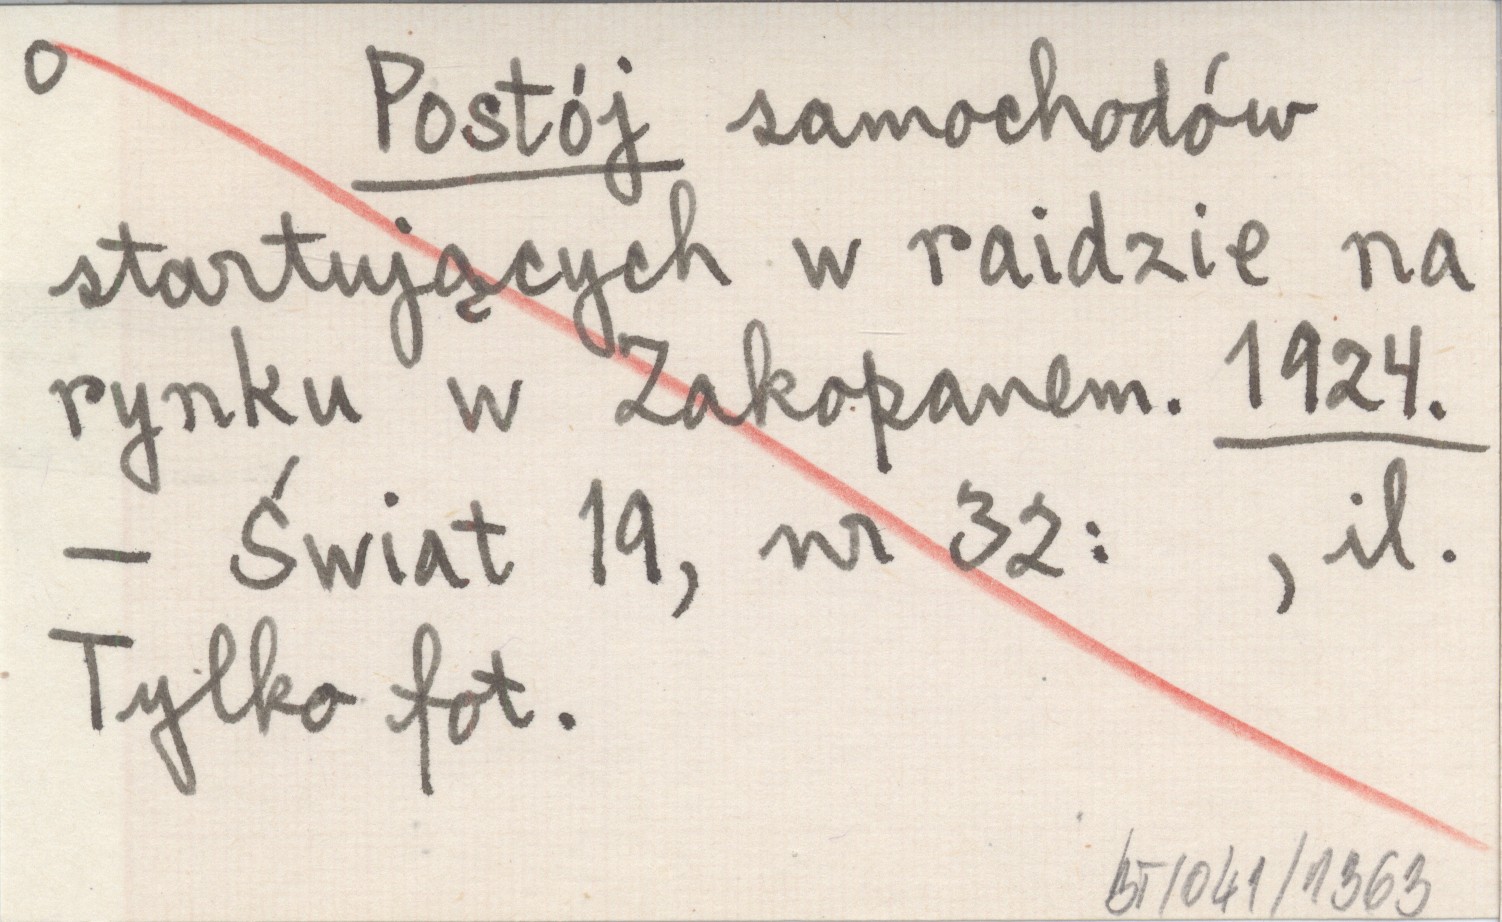 O Postój samochodów
startujących w raidzie na
rynku w Zakopanem. 1924.
— Świat 19, nr 32: , il.
Tylko fot.
BT/041/1363